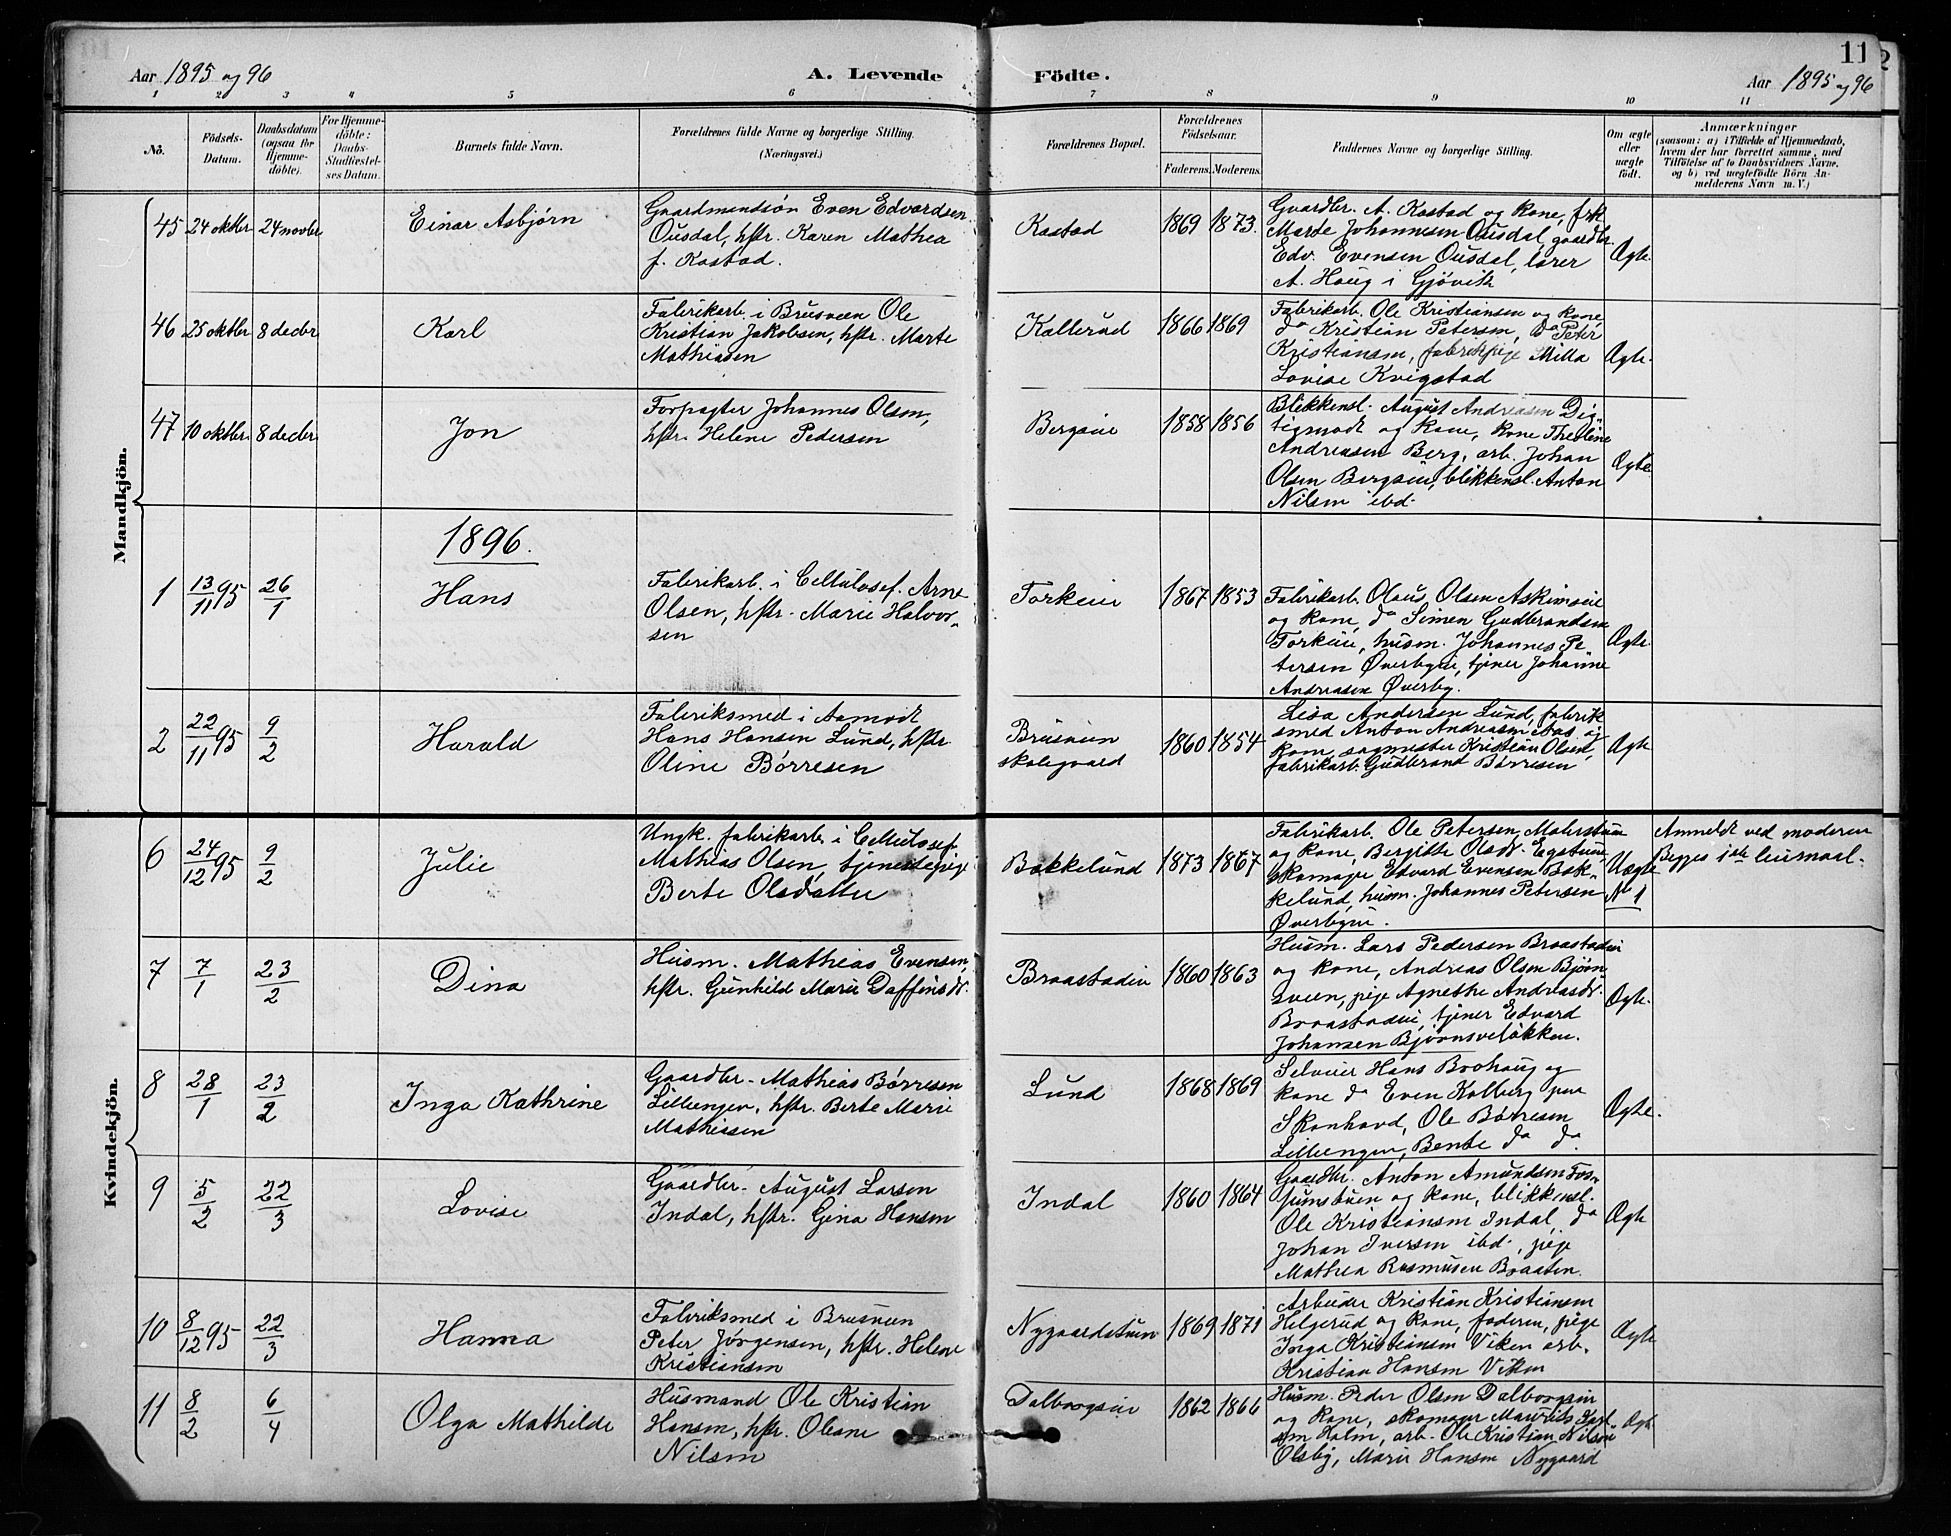 11
Aar 1895 og 96
A. Levende Födte.
Aar 1895 og 96
1 2 3 4 5 6 7 8 9 10 11
No.
Födsels-
Datum.
Daabsdatum
(ogsaa for
Hjemme-
döbte).
For Hjemme-
döbte:
Daabs-
Stadfæstel-
ses Datum.
Barnets fulde Navn.
Forældrenes fulde Navne og borgerlige Stilling.
(Næringsvei.)
Forældrenes Bopæl.
Forældrenes
Födselsaar.
Faderens. Moderens.
Faddernes Navne og borgerlige Stilling.
Om ægte
eller
uægte
födt.
Anmærkninger
(saasom: a) i Tilfælde af Hjemmedaab,
hvem der har forrettet samme, med
Tilföielse af to Daabsvidners Navne.
og b) ved uægtefödte Börn An-
melderens Navn m. V.)
Mandkjön.
45 24 oktbr 24 novbr
Einar Asbjørn
Gaardmandsön Even Edvardsen
Ousdal, hstr. Karen Mathea
f. Kastad.
Kastad
1869 1873.
Gaardbr. A. Kastad og kone, frk
Marte Johannesen Ousdal, gaardbr.
Edv. Evensen Ousdal, lærer
A. Haug i Gjövik
Ægte
46 25 oktbr 8 decbr
Karl
Fabrikarb. i Brusveen Ole
Kristian Jakobsen, hstr. Marte
Mathiasen
Kallerud
1866 1869
Fabrikarb. Ole Kristiansen og kone
do Kristian Petersen, do Peter
Kristiansen, fabrikpige Milla
Lovise Kvigstad
Ægte.
47 10 oktbr. 8 decbr
Jon
Forpagter Johannes Olsen,
hstr. Helene Pedersen
Bergseie
1858 1856
Blikkensl. August Andreasen Dig-
tigmodt og kone, kone Theoline
Andreasen Berg, arb. Johan
Olsen Bergseie, blikkensl. Anton
Nilsen ibd.
Ægte
1896.
1 13/11 95 26/1
Hans
Fabrikarb. i Cellulosef. Arne
Olsen, hstr. Marie Halvor-
sen
Torkeie
1867 1853
Fabrikarb. Olaus Olsen Askimeie
og kone, do Simen Gudbrandsen
Torkeie, husm. Johannes Pe-
tersen Øverbyeie, tjener Johanne
Andreasen Øverby.
Ægte.
2 22/11 95 9/2
Harald
Fabriksmed i Aamodt
Hans Hansen Lund, hstr.
Oline Børresen
Brusveen
skolegaard
1860 1854
Lisa Andersen Lund, fabrik
smed Anton Andreasen Aas og
kone, sagmester Kristian Olsen,
fabrikarb. Gudbrand Børresen
Ægte
Kvindekjön.
6 24/12 95 9/2
Julie
Ungk. fabrikarb. i Cellulosef.
Mathias Olsen, tjenestepige
Berte Olsdatter
Bakkelund
1873 1867
Fabrikarb. Ole Petersen Malerstuen
og kone, Bergitte Olsdr. Egstuen,
skomager Edvard Evensen Bak-
kelund, husm. Johannes Petersen
Øverbyeie.
Uægte
No 1
Anmeldt ved moderen
Begges 1ste leiermaal.
7 7/1 23/2
Dina
Husm. Mathias Evensen,
hstr. Gunhild Marie Daffinsdr.
Braastadeie
1860 1863
Husm. Lars Pedersen Braastadeie
og kone, Andreas Olsen Bjørn
sveen, pige Agnethe Andreasdr.
Braastadeie, tjener Edvard
Johansen Bjørnsveløkken.
Ægte.
8 28/1 23/2
Inga Kathrine
Gaardbr. Mathias Børresen
Lilleengen, hstr. Berte Marie
Mathissen
Lund
1868 1869
Selveier Hans Brohaug og
kone do Even Kolberg paa
Skonhovd, Ole Børresen
Lillengen, Bente do do
Ægte.
9 5/2 22/3
Lovise
Gaardbr. August Larsen
Indal, hstr. Gina Hansen
Indal
1860 1864
Gaardbr. Anton Amundsen Fos-
sumstuen og kone, blikkensl.
Ole Kristiansen Indal, do
Johan Iversen ibd., pige
Mathea Rasmusen Braaten.
Ægte
10 8/12 95 22/3
Hanna
Fabriksmed i Brusveen
Peter Jørgensen, hstr. Helene
Kristiansen
Nygaardstuen
1869 1871
Arbeider Kristian Kristiansen
Helgerud og kone, faderen, pige
Inga Kristiansen Viken arb.
Kristian Hansen Viken
Ægte
11 8/2 6/4
Olga Mathilde
Husmand Ole Kristian
Hansen, hstr. Oleane
Nilsen
Dalborgseie
1862 1866
Husm. Peder Olsen Dalborgseie
og kone, skomager Mauritz Karl
sen Holm, arb. Ole Kristian Nilsen
Olsby, Marie Hansen Nygaard
Ægte